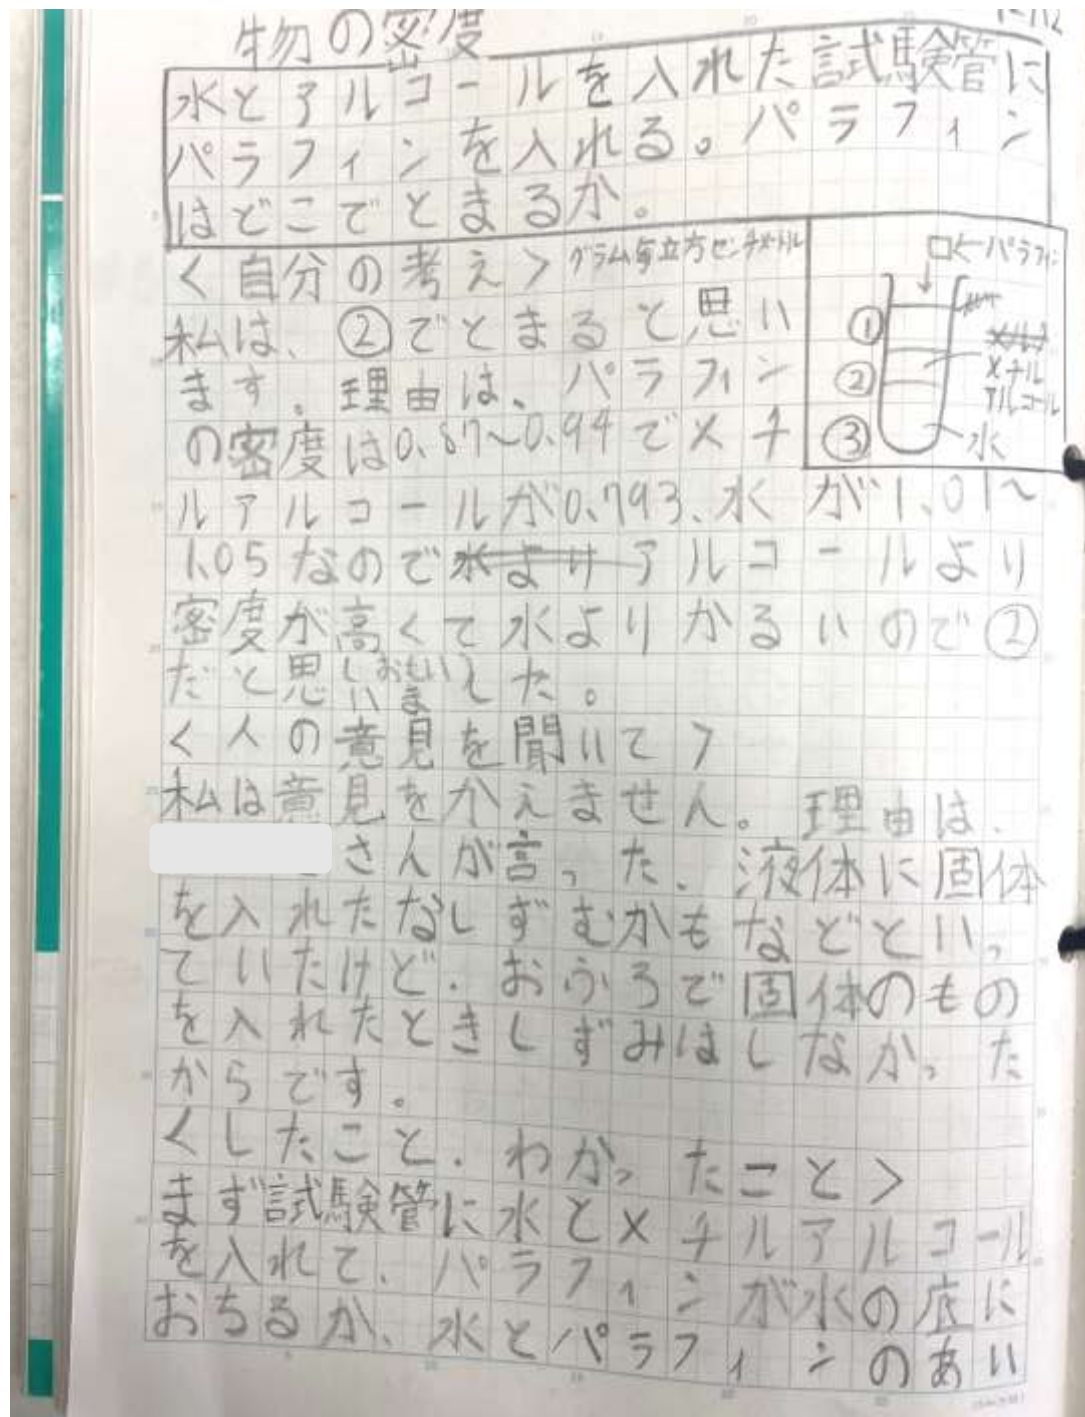 物の密度
水とアルコールを入れた試験管に
パラフィンを入れる。パラフィン
はどこでとまるか。
<自分の考え> グラム毎立方センチメートル
私は、②でとまると思い
ます。理由は、パラフィン
の密度は0.87~0.94でメチ
ルアルコールが0.793、水が1.01~
1.05なので水よりアルコールより
密度が高くて水よりかるいので②
だと思いました。
□←パラフィン
①
②
③
メチル
アルコール
水
<人の意見を聞いて>
私は意見をかえません。理由は、
さんが言った、液体に固体
を入れたなしずむかもなどといっ
ていたけど、おふろで固体のもの
を入れたときしずみはしなかった
からです。
<したこと、わかったこと>
まず試験管に水とメチルアルコール
を入れて、パラフィンが水の底に
おちるか、水とパラフィンのあい